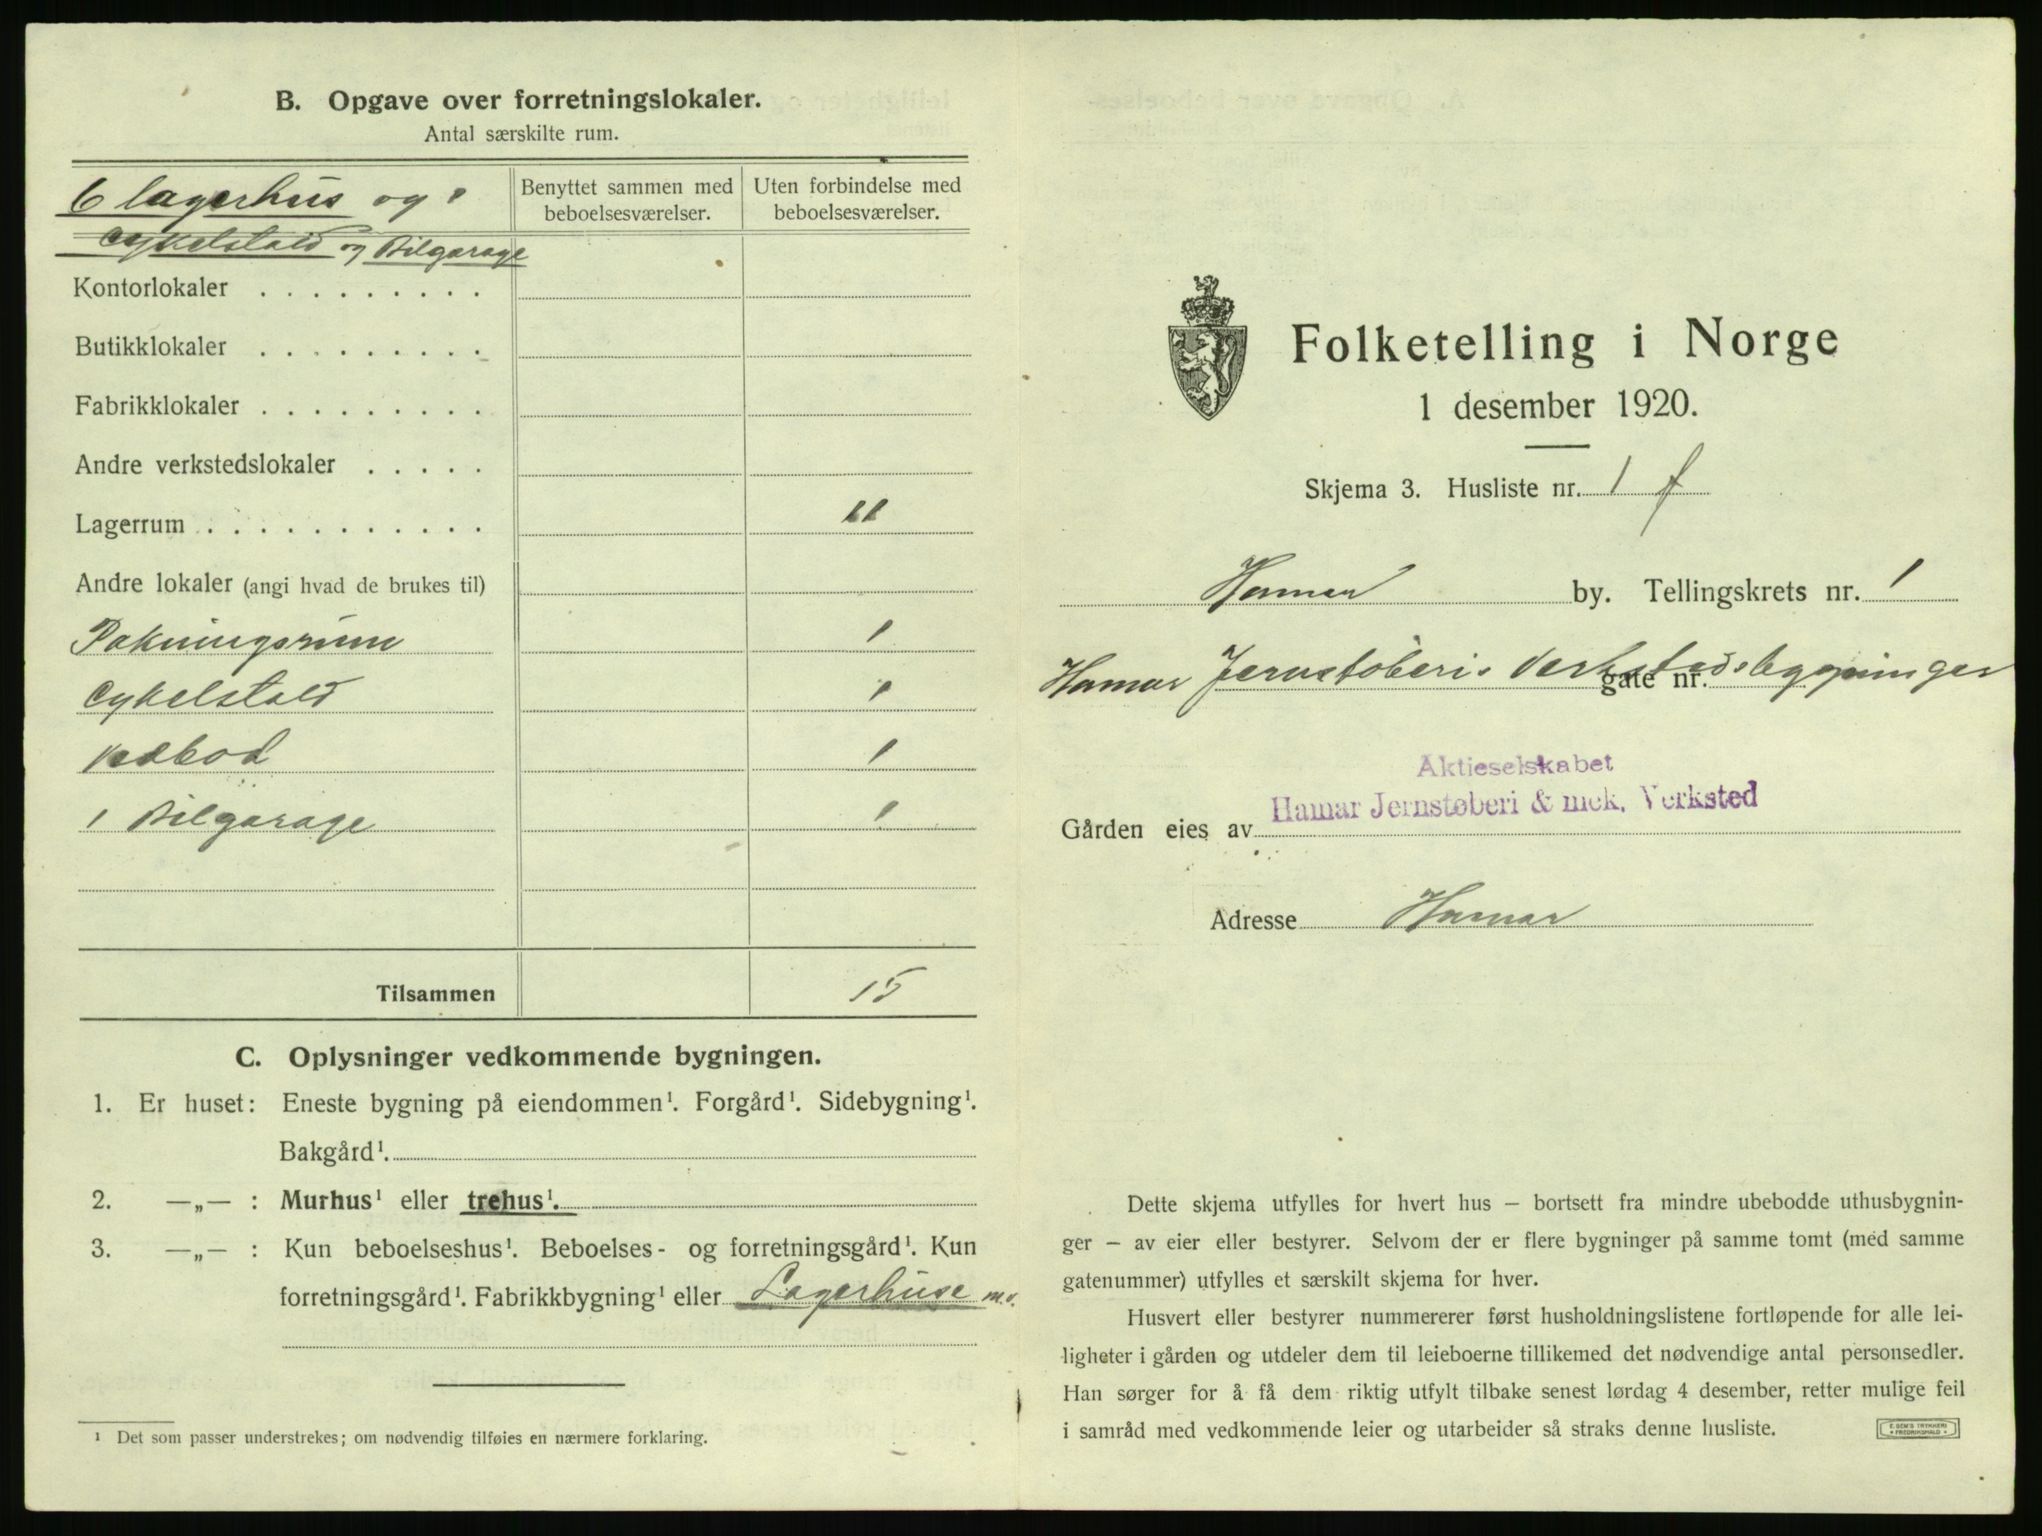 B. Opgave over forretningslokaler.
Antal særskilte rum.
6 lagerhus og 1
Cykelstald og Bilgarage
Benyttet sammen med
beboelsesværelser.
Uten forbindelse med
beboelsesværelser.
Kontorlokaler . . . . . . . . .
Butikklokaler . . . . . . . . .
Fabrikklokaler . . . . . . . . .
Andre verkstedslokaler . . . . .
Lagerrum . . . . . . . . . . . . 11
Andre lokaler (angi hvad de brukes til)
Pakningsrum 1
Cykelstald 1
Vedbod 1
1 Bilgarage 1
Tilsammen 15
C. Oplysninger vedkommende bygningen.
1. Er huset: Eneste bygning på eiendommen¹. Forgård¹. Sidebygning¹.
Bakgård¹.
2. —„— : Murhus¹ eller trehus¹.
3. —„— : Kun beboelseshus¹. Beboelses- og forretningsgård¹. Kun
forretningsgård¹. Fabrikkbygning¹ eller Lagerhuse m.v.
¹ Det som passer understrekes; om nødvendig tilføies en nærmere forklaring.
Folketelling i Norge
1 desember 1920.
Skjema 3. Husliste nr. 1 f
Hamar by. Tellingskrets nr. 1
Hamar Jernstøberis Verkstadsbygninger
gate nr.
Aktieselskabet
Hamar Jernstøberi & mek. Verksted
Gården eies av
Adresse Hamar
Dette skjema utfylles for hvert hus – bortsett fra mindre ubebodde uthusbygnin-
ger – av eier eller bestyrer. Selvom der er flere bygninger på samme tomt (med samme
gatenummer) utfylles et særskilt skjema for hver.
Husvert eller bestyrer nummererer først husholdningslistene fortløpende for alle lei-
ligheter i gården og utdeler dem til leieboerne tillikemed det nødvendige antal personsedler.
Han sørger for å få dem riktig utfylt tilbake senest lørdag 4 desember, retter mulige feil
i samråd med vedkommende leier og utarbeider så straks denne husliste.
E. SEM'S TRYKKERI
• FREDRIKSHALD •